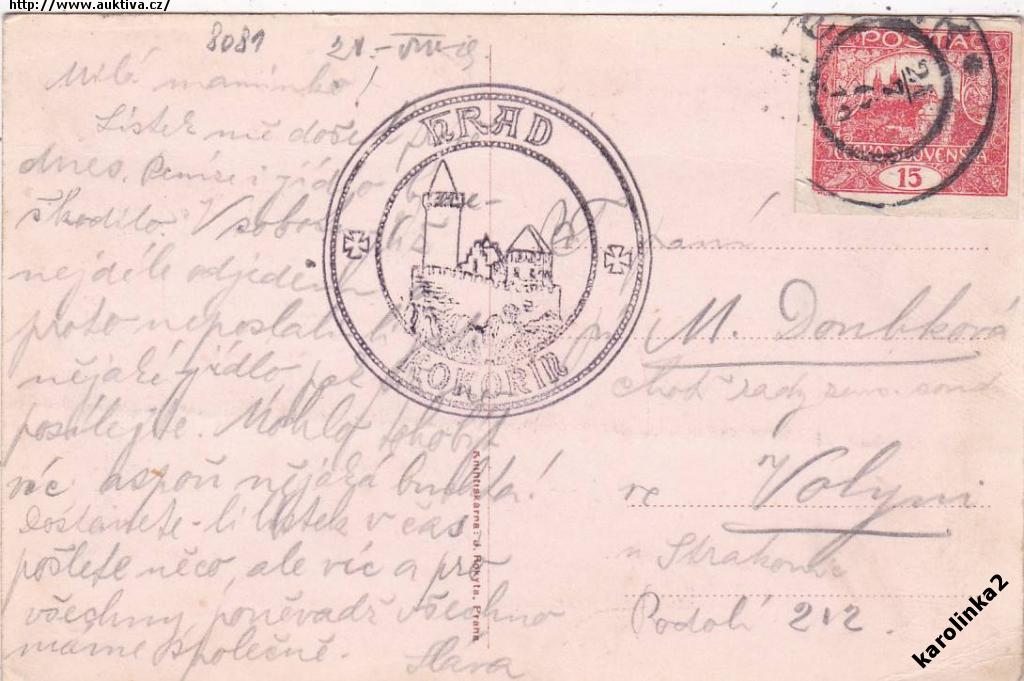 http://www.auktiva.cz/
8081 21.-VIII-19
Milá maminko!
Lístek mě došel
dnes. Peníze i jídlo
škodilo. V sobotu
nejdéle odjedem
proto neposlali
nějaké jídlo
posílejte. Mohlo toho být
víc aspoň nějaká buchta!
Dostanete-li lístek v čas
pošlete něco, ale víc a pro
všechny poněvadž všechno
máme společné. Slava
HRAD
KOKOŘIN
Knihtiskárna: J. Rokyta, Praha
POŠTA
ČESKO-SLOVENSKÁ
15
M. Doubková
choť rady zem. soud.
ve Volyni
u Strakonic
Podolí 212
karolinka2